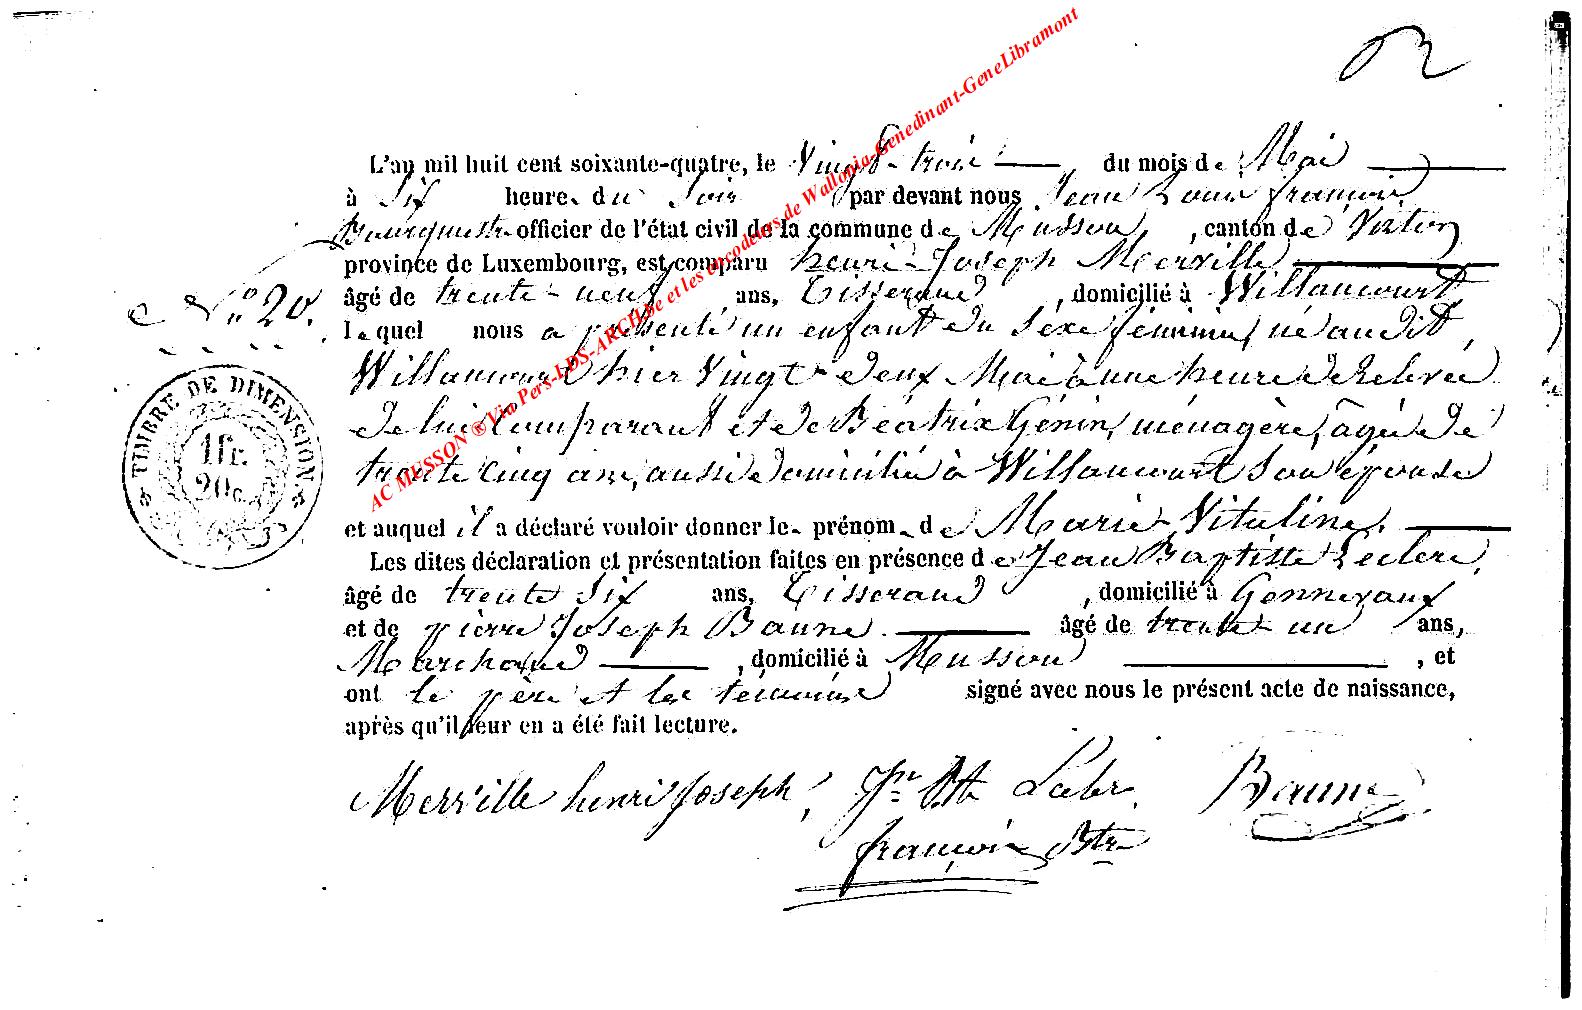 L'an mil huit cent soixante-quatre, le Vingt-trois du mois de Mai
à Six heure du Soir par devant nous Jean Louis françois
Bourgmestre officier de l'état civil de la commune de Musson, canton de Virton
province de Luxembourg, est comparu henri-Joseph Merville
N° 20.
âgé de trente-neuf ans, Tisserand, domicilié à Willancourt,
lequel nous a présenté un enfant du séxe féminin, né audit
Willancourt hier Vingt-deux Mai à une heure de Relevée
de lui Comparant et de Béatrix Génin, ménagère, agée de
trente cinq ans, aussi domiciliée à Willancourt Son épouse
et auquel il a déclaré vouloir donner le prénom de Marie-Vitaline.
Les dites déclaration et présentation faites en présence de Jean Baptiste Leclerc,
âgé de trente Six ans, Tisserand, domicilié à Gennevaux
et de pierre Joseph Baune. âgé de trente-un ans,
Marchand, domicilié à Musson, et
ont le père et les témoins signé avec nous le présent acte de naissance,
après qu'il leur en a été fait lecture.
Merville henri Joseph, Jn Bte Baune
françois Btre
TIMBRE DE DIMENSION
1fr.
20c.
AC MUSSON ® Via Pers-LDS-ARCH.be et les encodeurs de Wallonia-Genedinant-GeneLibramont